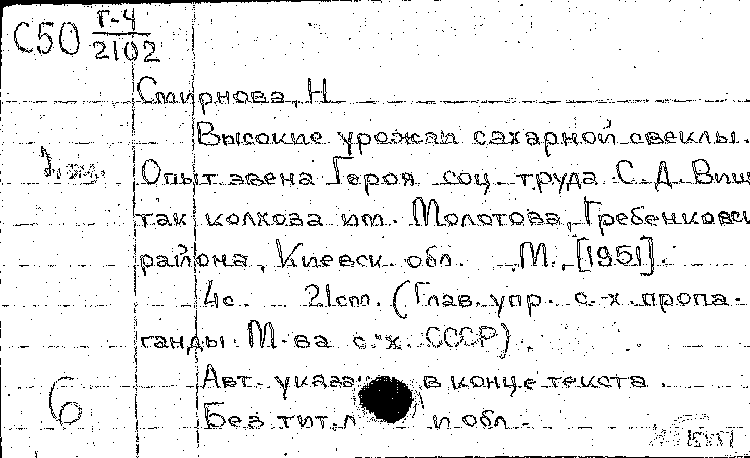 С50 Г-4
2102
Смирнова, Н
Высокие урожаи сахарной свеклы.
1 эк.
Опыт звена Героя соц. труда С. Д. Виш
так колхоза им. Молотова, Гребенковск
района, Киевск. обл. М., [1951].
4с. 21cm. (Глав. упр. с.-х. пропа-
ганды М-ва с.-х. СССР).
Авт. указан в конце текста.
6
Без тит. л и обл.